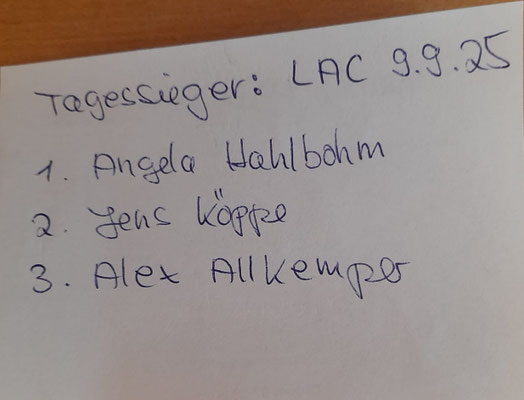 Tagessieger: LAC 9.9.25
1. Angela Hahlbohm
2. Jens Köppe
3. Alex Allkemper